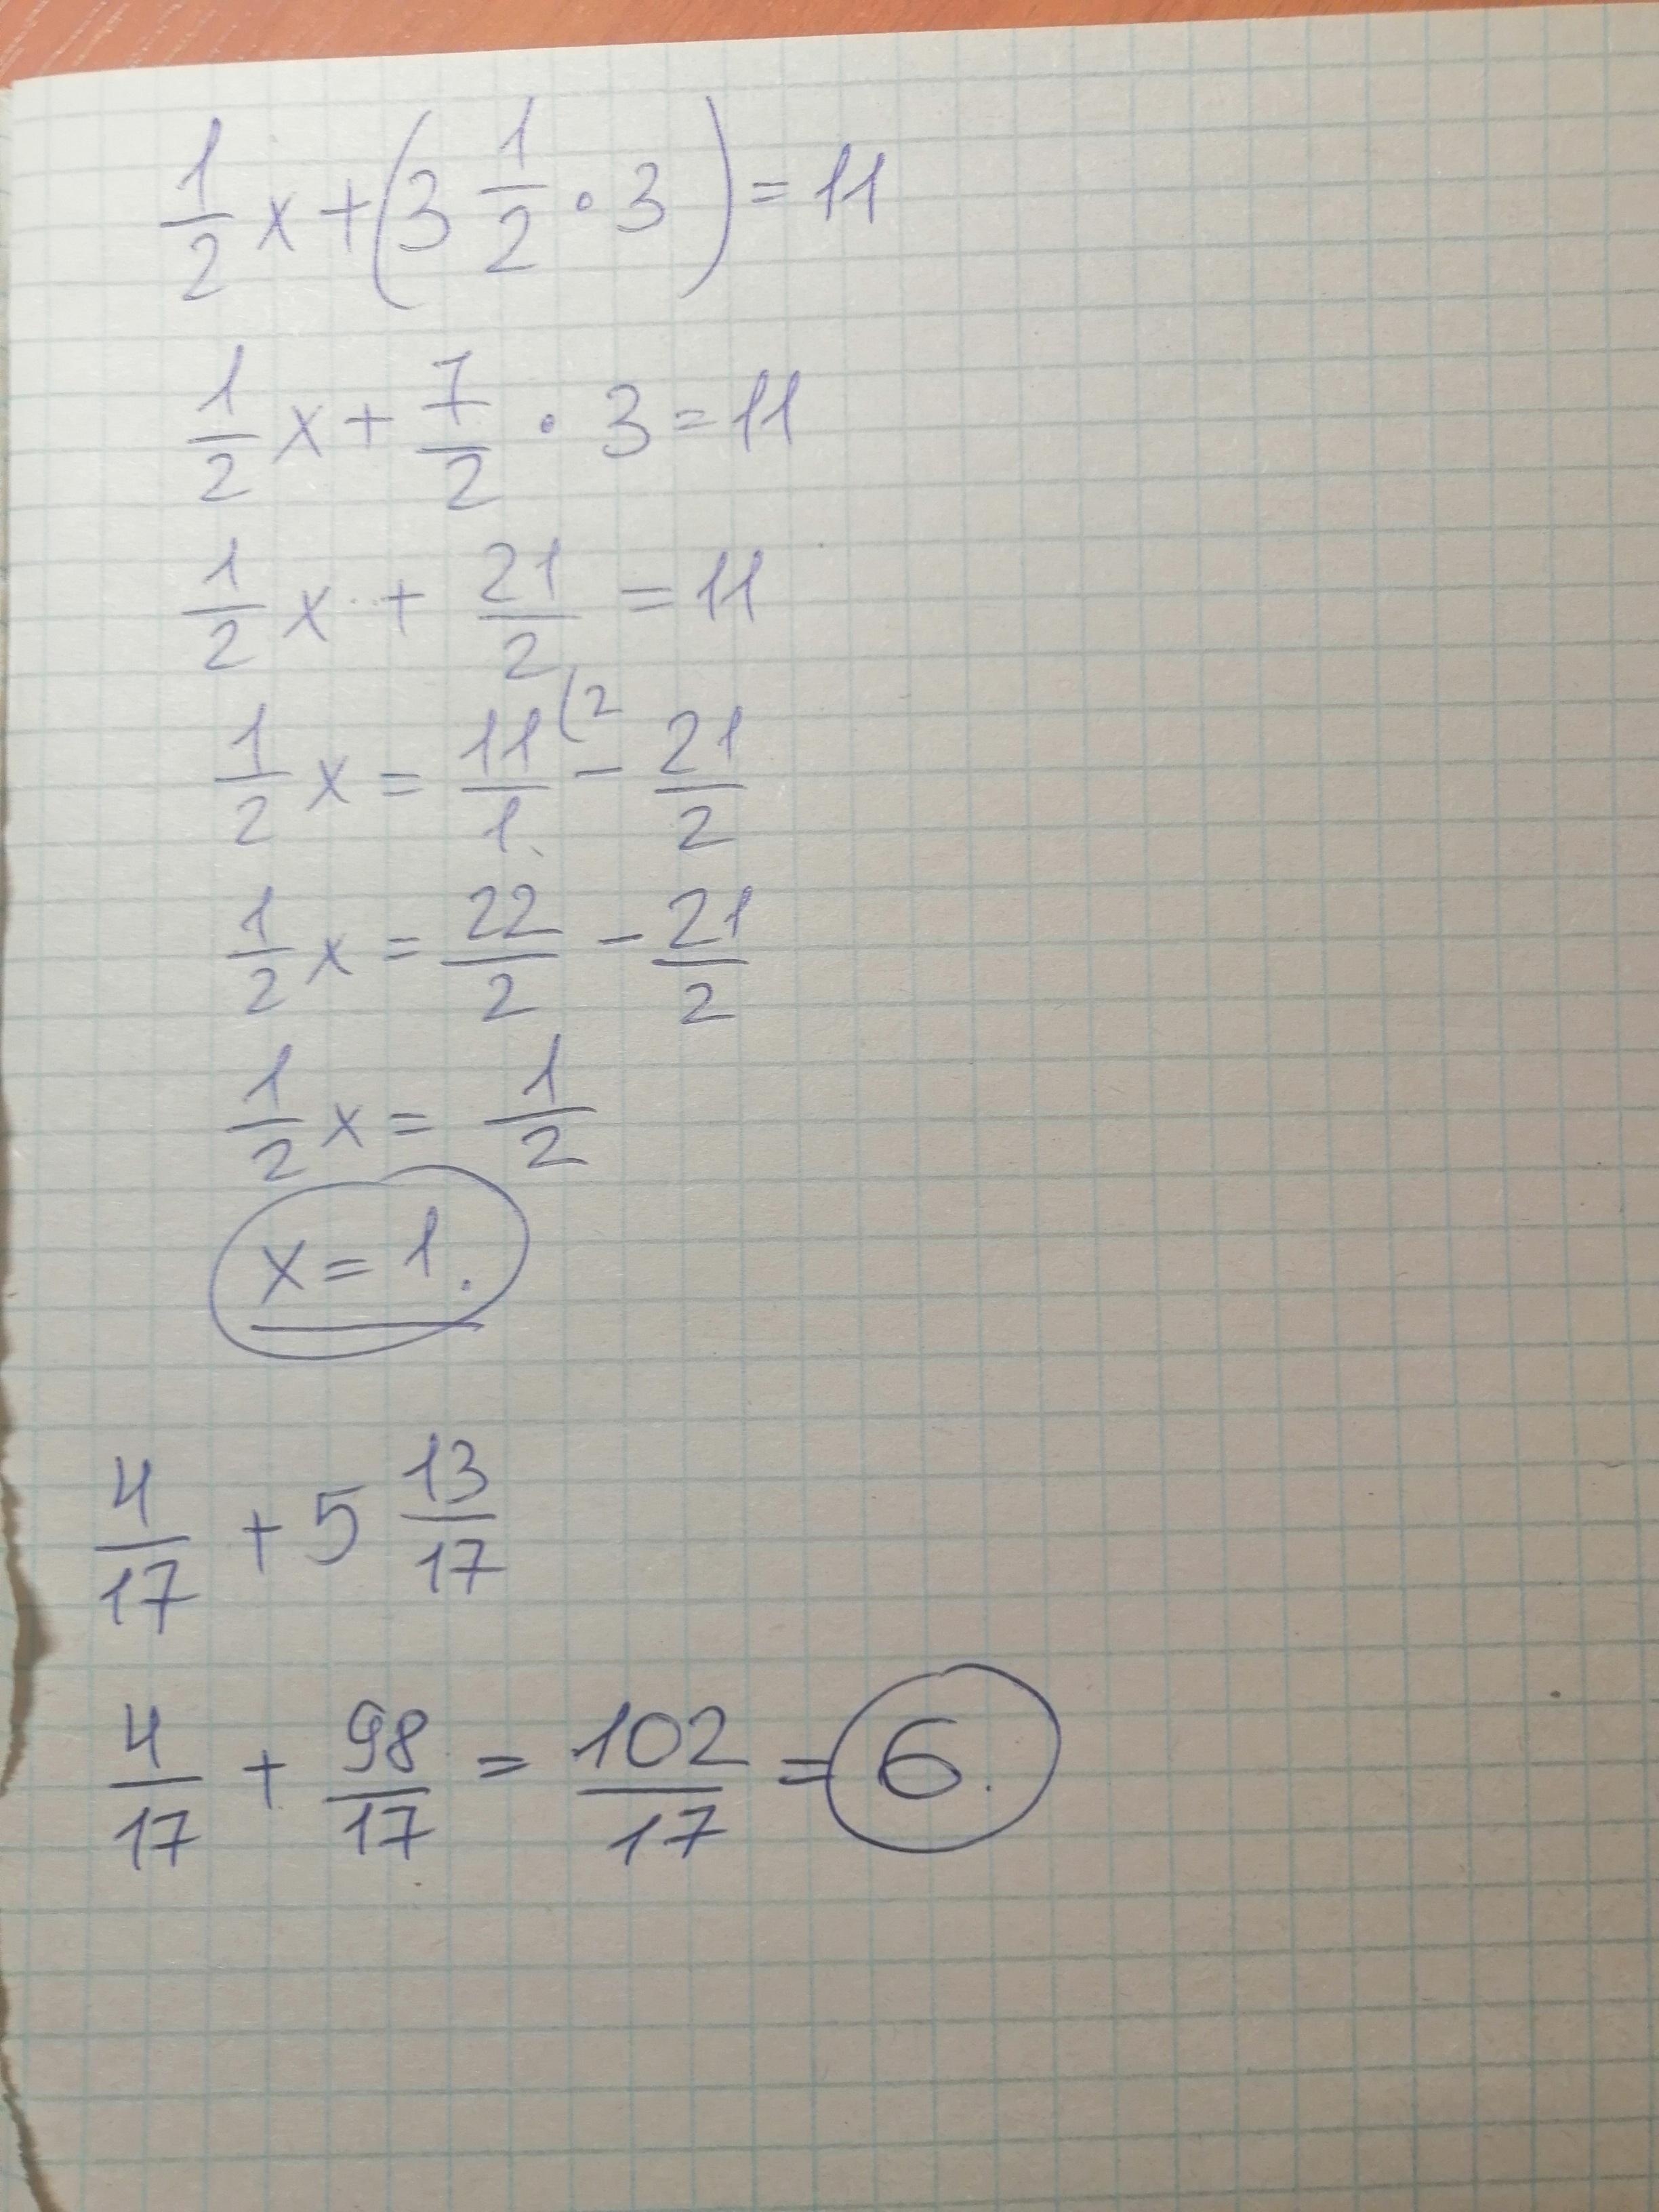 1/2 x + (3 1/2 · 3) = 11
1/2 x + 7/2 · 3 = 11
1/2 x + 21/2 = 11
1/2 x = 11/1 (2 - 21/2
1/2 x = 22/2 - 21/2
1/2 x = 1/2
x = 1.
4/17 + 5 13/17
4/17 + 98/17 = 102/17 = 6.